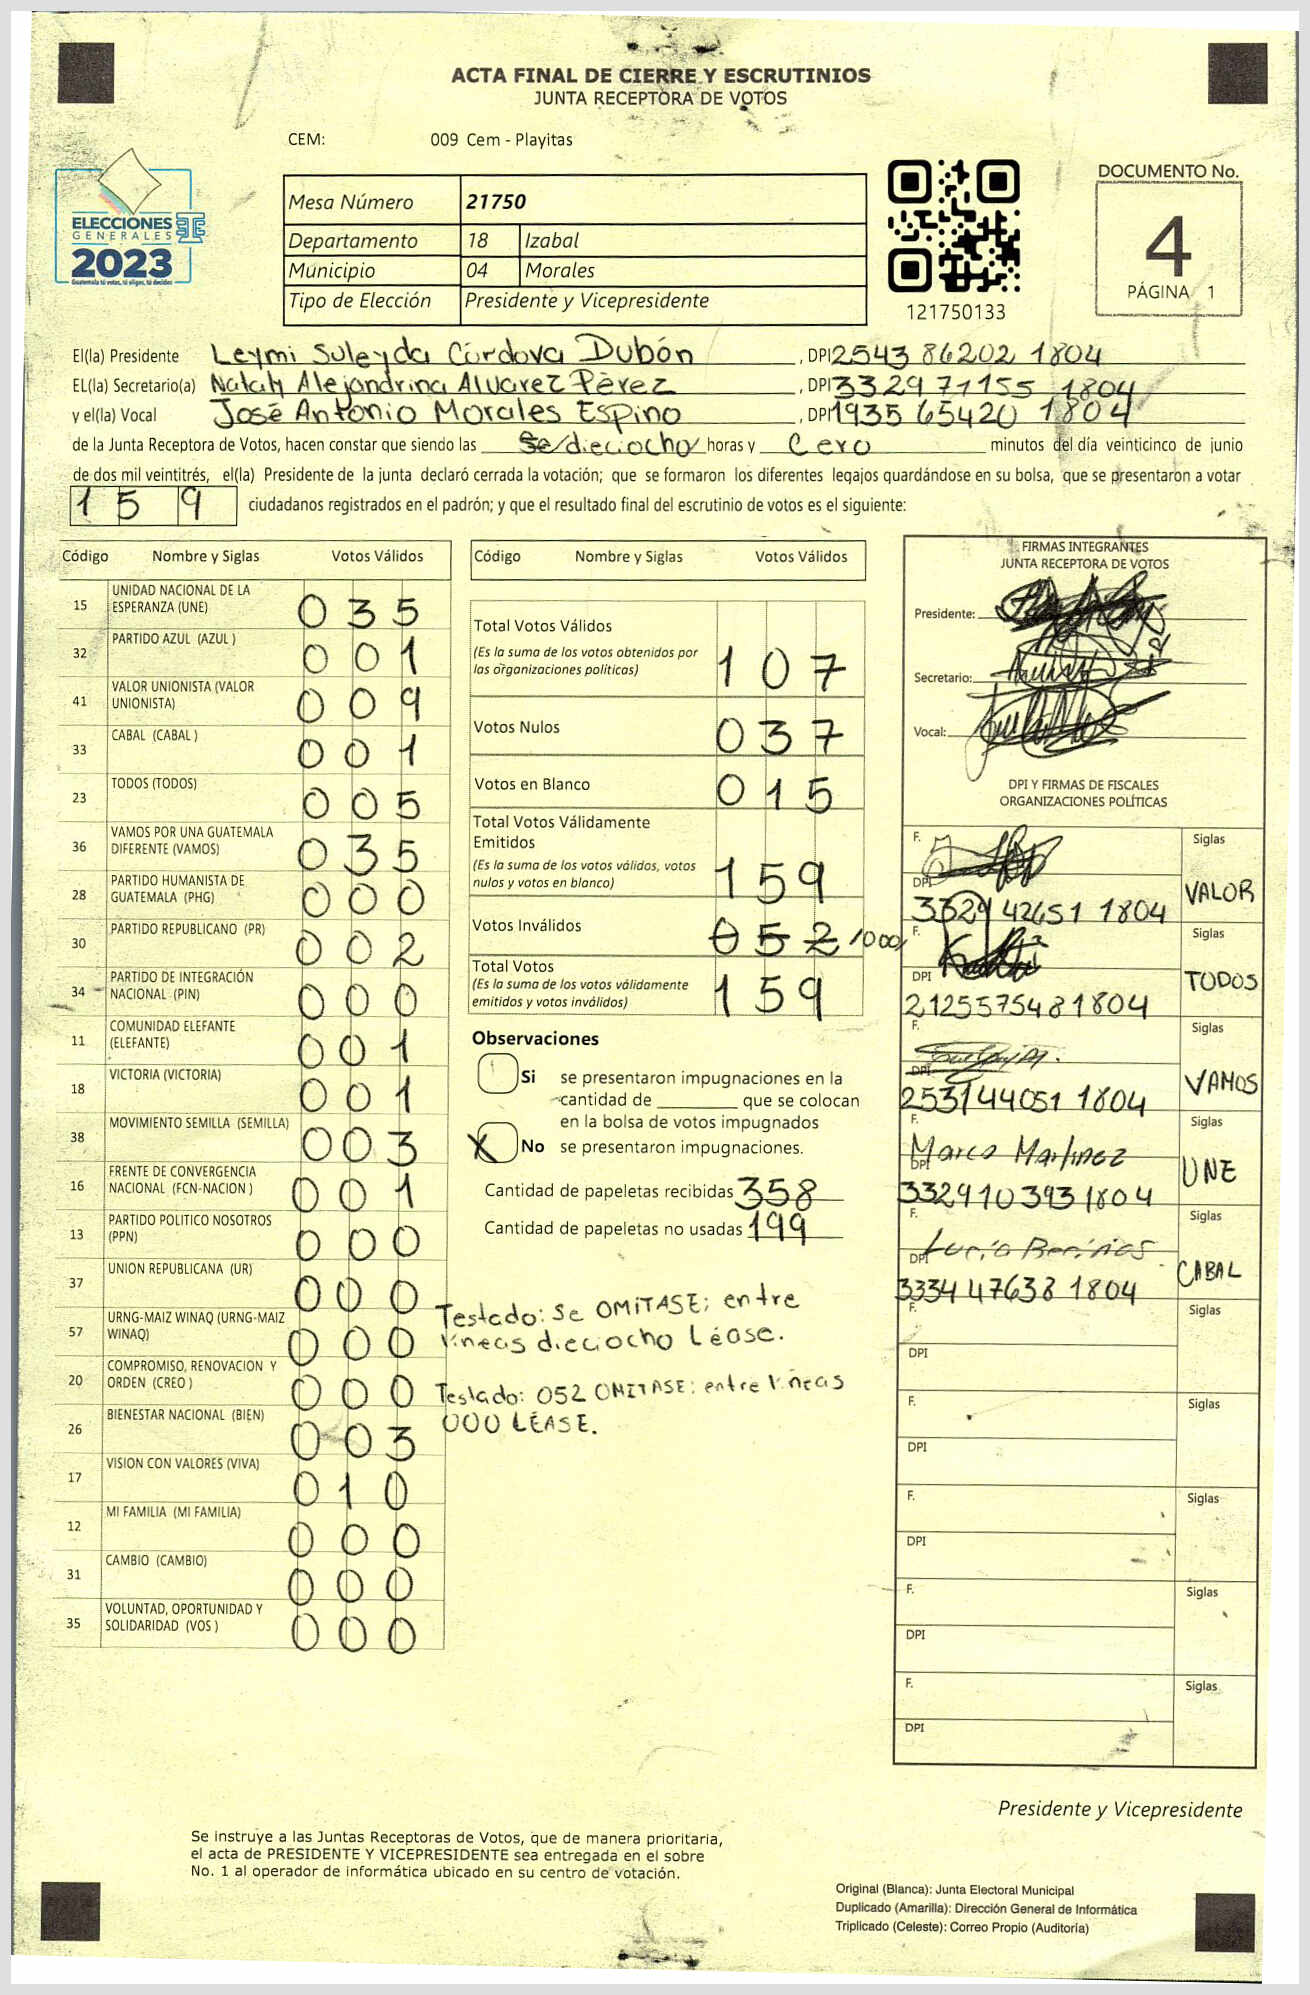 ACTA FINAL DE CIERRE Y ESCRUTINIOS
JUNTA RECEPTORA DE VOTOS
CEM: 009 Cem - Playitas
ELECCIONES
GENERALES
2023
Guatemala tú votas, tú eliges, tú decides
Mesa Número 21750
Departamento 18 Izabal
Municipio 04 Morales
Tipo de Elección Presidente y Vicepresidente
121750133
DOCUMENTO No.
4
PÁGINA 1
El(la) Presidente Leymi Suleyda Córdova Dubón, DPI 2543 86202 1804
EL(la) Secretario(a) Nataly Alejandrina Alvarez Pérez, DPI 3329 71155 1804
y el(la) Vocal José Antonio Morales Espino, DPI 1935 65420 1804
de la Junta Receptora de Votos, hacen constar que siendo las Se/dieciocho/ horas y Cero minutos del día veinticinco de junio
de dos mil veintitrés, el(la) Presidente de la junta declaró cerrada la votación; que se formaron los diferentes legajos guardándose en su bolsa, que se presentaron a votar
159 ciudadanos registrados en el padrón; y que el resultado final del escrutinio de votos es el siguiente:
Código Nombre y Siglas Votos Válidos
15 UNIDAD NACIONAL DE LA ESPERANZA (UNE) 035
32 PARTIDO AZUL (AZUL ) 001
41 VALOR UNIONISTA (VALOR UNIONISTA) 009
33 CABAL (CABAL ) 001
23 TODOS (TODOS) 005
36 VAMOS POR UNA GUATEMALA DIFERENTE (VAMOS) 035
28 PARTIDO HUMANISTA DE GUATEMALA (PHG) 000
30 PARTIDO REPUBLICANO (PR) 002
34 PARTIDO DE INTEGRACIÓN NACIONAL (PIN) 000
11 COMUNIDAD ELEFANTE (ELEFANTE) 001
18 VICTORIA (VICTORIA) 001
38 MOVIMIENTO SEMILLA (SEMILLA) 003
16 FRENTE DE CONVERGENCIA NACIONAL (FCN-NACION ) 001
13 PARTIDO POLITICO NOSOTROS (PPN) 000
37 UNION REPUBLICANA (UR) 000
57 URNG-MAIZ WINAQ (URNG-MAIZ WINAQ) 000
20 COMPROMISO, RENOVACION Y ORDEN (CREO ) 000
26 BIENESTAR NACIONAL (BIEN) 003
17 VISION CON VALORES (VIVA) 010
12 MI FAMILIA (MI FAMILIA) 000
31 CAMBIO (CAMBIO) 000
35 VOLUNTAD, OPORTUNIDAD Y SOLIDARIDAD (VOS ) 000
Código Nombre y Siglas Votos Válidos
Total Votos Válidos
(Es la suma de los votos obtenidos por
las organizaciones políticas) 107
Votos Nulos 037
Votos en Blanco 015
Total Votos Válidamente
Emitidos
(Es la suma de los votos válidos, votos
nulos y votos en blanco) 159
Votos Inválidos 052 /000/
Total Votos
(Es la suma de los votos válidamente
emitidos y votos inválidos) 159
Observaciones
Si se presentaron impugnaciones en la
cantidad de ________ que se colocan
en la bolsa de votos impugnados
X No se presentaron impugnaciones.
Cantidad de papeletas recibidas 358
Cantidad de papeletas no usadas 199
Testado: Se OMITASE; entre
líneas dieciocho Léase.
Testado: 052 OMITASE: entre líneas
000 LÉASE.
FIRMAS INTEGRANTES
JUNTA RECEPTORA DE VOTOS
Presidente:
Secretario:
Vocal:
DPI Y FIRMAS DE FISCALES
ORGANIZACIONES POLÍTICAS
F. Siglas
DPI 3329 42651 1804 VALOR
F. Siglas
DPI 2125575481804 TODOS
F. Siglas
DPI 253144051 1804 VAMOS
F. Marco Martinez
DPI 3329103931804 UNE
F. Siglas
DPI 3334 47638 1804 CABAL
F. Siglas
DPI
F. Siglas
DPI
F. Siglas
DPI
F. Siglas
DPI
F. Siglas
DPI
Presidente y Vicepresidente
Se instruye a las Juntas Receptoras de Votos, que de manera prioritaria,
el acta de PRESIDENTE Y VICEPRESIDENTE sea entregada en el sobre
No. 1 al operador de informática ubicado en su centro de votación.
Original (Blanca): Junta Electoral Municipal
Duplicado (Amarilla): Dirección General de Informática
Triplicado (Celeste): Correo Propio (Auditoría)